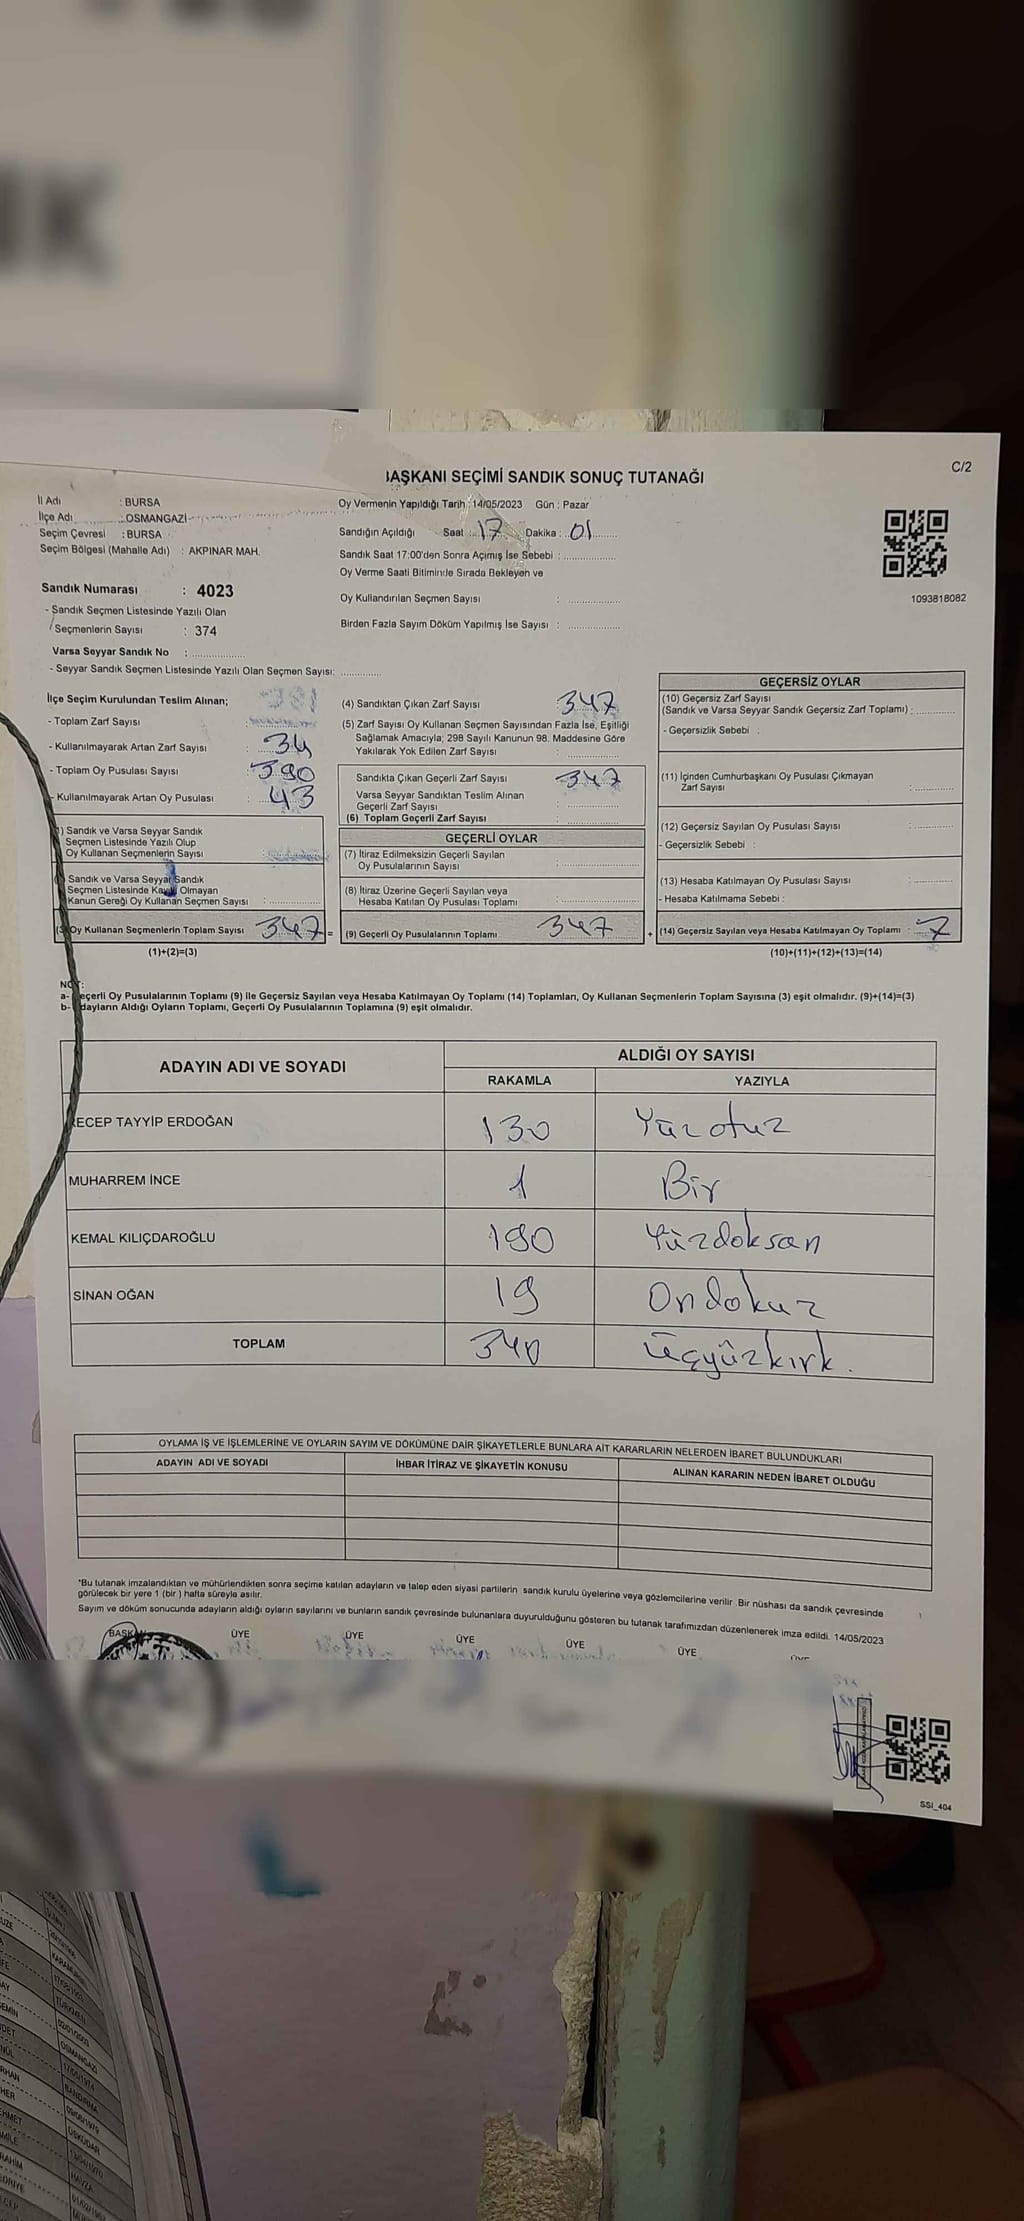 IK
BAŞKANI SEÇİMİ SANDIK SONUÇ TUTANAĞI
C/2
İl Adı : BURSA
İlçe Adı : OSMANGAZİ
Seçim Çevresi : BURSA
Seçim Bölgesi (Mahalle Adı) : AKPINAR MAH.
Sandık Numarası : 4023
- Sandık Seçmen Listesinde Yazılı Olan
Seçmenlerin Sayısı : 374
Varsa Seyyar Sandık No :
- Seyyar Sandık Seçmen Listesinde Yazılı Olan Seçmen Sayısı:
Oy Vermenin Yapıldığı Tarih : 14/05/2023 Gün : Pazar
Sandığın Açıldığı Saat : 17 Dakika : 01
Sandık Saat 17:00'den Sonra Açımış İse Sebebi :
Oy Verme Saati Bitiminde Sırada Bekleyen ve
Oy Kullandırılan Seçmen Sayısı :
Birden Fazla Sayım Döküm Yapılmış İse Sayısı :
1093818082
İlçe Seçim Kurulundan Teslim Alınan;
- Toplam Zarf Sayısı : 381
- Kullanılmayarak Artan Zarf Sayısı : 34
- Toplam Oy Pusulası Sayısı : 390
- Kullanılmayarak Artan Oy Pusulası : 43
) Sandık ve Varsa Seyyar Sandık
Seçmen Listesinde Yazılı Olup
Oy Kullanan Seçmenlerin Sayısı :
Sandık ve Varsa Seyyar Sandık
Seçmen Listesinde Kayıtlı Olmayan
Kanun Gereği Oy Kullanan Seçmen Sayısı :
(3) Oy Kullanan Seçmenlerin Toplam Sayısı 347 =
(1)+(2)=(3)
(4) Sandıktan Çıkan Zarf Sayısı 347
(5) Zarf Sayısı Oy Kullanan Seçmen Sayısından Fazla İse, Eşitliği
Sağlamak Amacıyla; 298 Sayılı Kanunun 98. Maddesine Göre
Yakılarak Yok Edilen Zarf Sayısı :
Sandıkta Çıkan Geçerli Zarf Sayısı 347
Varsa Seyyar Sandıktan Teslim Alınan
Geçerli Zarf Sayısı :
(6) Toplam Geçerli Zarf Sayısı :
GEÇERLİ OYLAR
(7) İtiraz Edilmeksizin Geçerli Sayılan
Oy Pusulalarının Sayısı :
(8) İtiraz Üzerine Geçerli Sayılan veya
Hesaba Katılan Oy Pusulası Toplamı :
(9) Geçerli Oy Pusulalarının Toplamı : 347 +
GEÇERSİZ OYLAR
(10) Geçersiz Zarf Sayısı
(Sandık ve Varsa Seyyar Sandık Geçersiz Zarf Toplamı) :
- Geçersizlik Sebebi :
(11) İçinden Cumhurbaşkanı Oy Pusulası Çıkmayan
Zarf Sayısı :
(12) Geçersiz Sayılan Oy Pusulası Sayısı :
- Geçersizlik Sebebi :
(13) Hesaba Katılmayan Oy Pusulası Sayısı :
- Hesaba Katılmama Sebebi :
(14) Geçersiz Sayılan veya Hesaba Katılmayan Oy Toplamı : 7
(10)+(11)+(12)+(13)=(14)
NOT:
a- Geçerli Oy Pusulalarının Toplamı (9) İle Geçersiz Sayılan veya Hesaba Katılmayan Oy Toplamı (14) Toplamları, Oy Kullanan Seçmenlerin Toplam Sayısına (3) eşit olmalıdır. (9)+(14)=(3)
b- Adayların Aldığı Oyların Toplamı, Geçerli Oy Pusulalarının Toplamına (9) eşit olmalıdır.
ADAYIN ADI VE SOYADI ALDIĞI OY SAYISI
RAKAMLA YAZIYLA
RECEP TAYYİP ERDOĞAN 130 Yüzotuz
MUHARREM İNCE 1 Bir
KEMAL KILIÇDAROĞLU 190 Yüzdoksan
SİNAN OĞAN 19 Ondokuz
TOPLAM 340 Üçyüzkırk.
OYLAMA İŞ VE İŞLEMLERİNE VE OYLARIN SAYIM VE DÖKÜMÜNE DAİR ŞİKAYETLERLE BUNLARA AİT KARARLARIN NELERDEN İBARET BULUNDUKLARI
ADAYIN ADI VE SOYADI İHBAR İTİRAZ VE ŞİKAYETİN KONUSU ALINAN KARARIN NEDEN İBARET OLDUĞU
*Bu tutanak imzalandıktan ve mühürlendikten sonra seçime katılan adayların ve talep eden siyasi partilerin sandık kurulu üyelerine veya gözlemcilerine verilir. Bir nüshası da sandık çevresinde
görülecek bir yere 1 (bir) hafta süreyle asılır.
Sayım ve döküm sonucunda adayların aldığı oyların sayılarını ve bunların sandık çevresinde bulunanlara duyurulduğunu gösteren bu tutanak tarafımızdan düzenlenerek imza edildi. 14/05/2023
BAŞKAN ÜYE ÜYE ÜYE ÜYE ÜYE ÜYE
SSİ_404